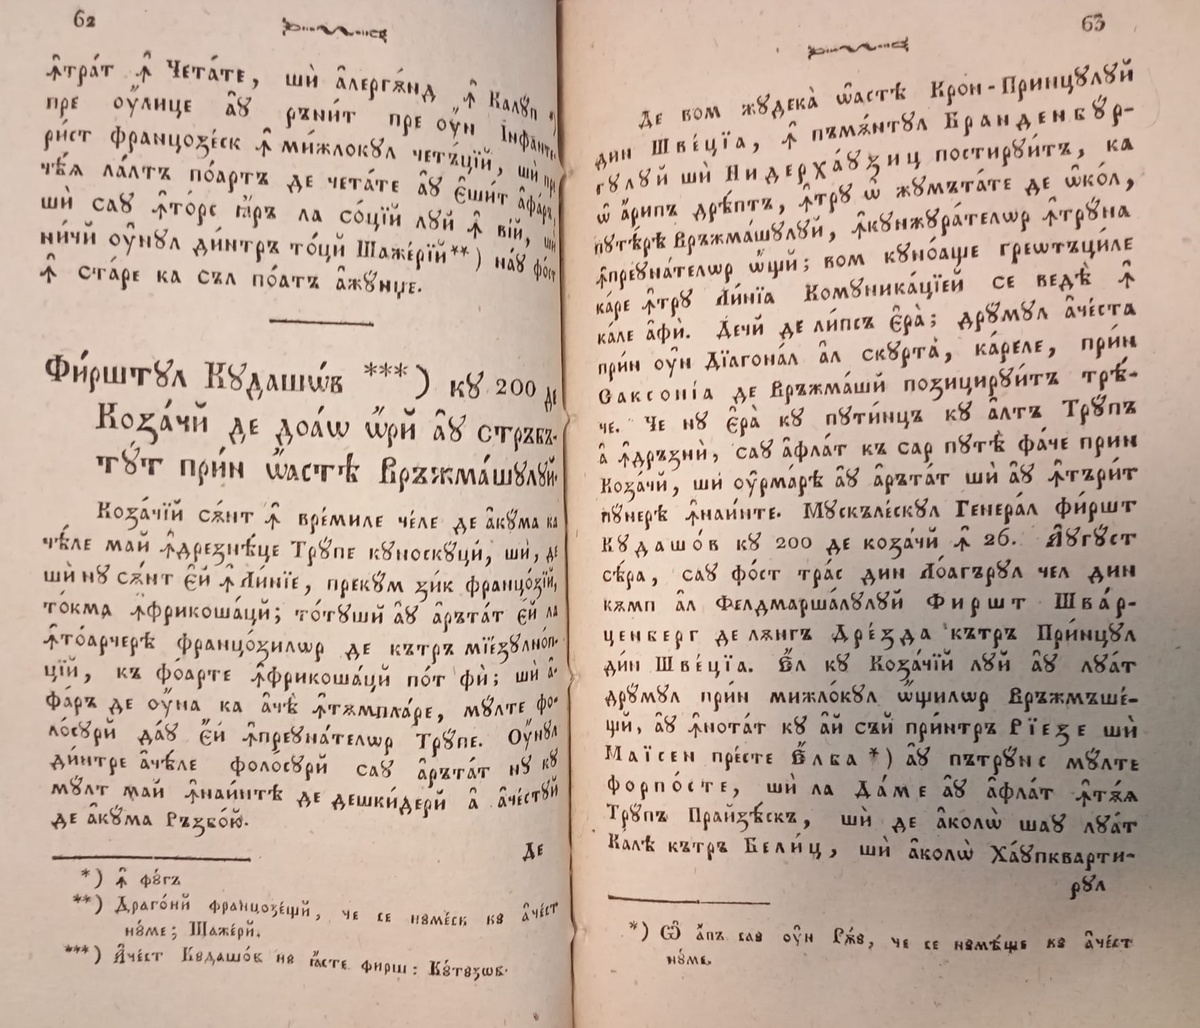 62
ꙟ҆тра́т ꙟ҆ Чета́те, шѝ а҆лергѫ́нд ꙟ҆ Калꙋ́п *)
пре ᲂу҆́лице аꙋ҆ рънѝт пре ᲂу҆н І҆нфанте-
рі́ст францозе́ск ꙟ҆ мѝжлокꙋл четъ́ций, шѝ пре
чѣ́ѧ ла́лтъ по́артъ де чета́те аꙋ҆ є҆шѝт а҆фа́ръ,
шѝ саꙋ ꙟ҆то́рс ꙗ҆́ръ ла со́ций лꙋй ꙟ҆ вій, шѝ
нѝчй ᲂу҆́нꙋл дѝнтръ то́цй Шаже́рїй **) наꙋ фо́ст
ꙟ҆ ста́ре ка съл по́атъ а҆жꙋнџе.
Фѝрштꙋл Кꙋдашѡ́в ***) кꙋ 200 де
Коза́чй де доаѡ ѡ҆рй аꙋ҆ стръбъ-
тꙋ́т при́н ѡ҆астѣ Връжма́шꙋлꙋй.
Коза́чїй сѫнт ꙟ҆ вре́миле че́ле де а҆кꙋма ка
чѣле май ꙟ҆дрезнѣ́це Трꙋпе кꙋноскꙋцй, шѝ, де
шѝ нꙋ сѫнт є҆й ꙟ҆ Ли́нїе, прекꙋм зик францо́зїй,
то́кма ꙟ҆фрикоша́цй; то́тꙋшй аꙋ҆ а҆ръта́т є҆й ла
ꙟ҆то́арчерѣ францо́зилѡр де кътръ мїезꙋлно́п-
цїй, къ фо́арте ꙟ҆фрикоша́цй по́т фѝ; шѝ а҆-
фа́ръ де ᲂу҆на ка а҆чѣ̀ ꙟ҆тѫмпла́ре, мꙋ́лте фо-
ло́сꙋрй да́ꙋ є҆й ꙟ҆преꙋна́телѡр Трꙋпе. Ѹ҆нꙋл
ди́нтре а҆чѣле фолосꙋрй саꙋ а҆ръта́т нꙋ кꙋ
мꙋлт май ꙟ҆наи́нтѣ де дешки́дерй а҆ а҆че́стꙋй
де а҆кꙋма Ръзбо́ю.
Де
*) ꙟ҆ фꙋ́гъ
**) Драго́нй францозе́щй, че се нꙋме́ск кꙋ а҆че́ст
нꙋ́ме; Шаже́рй.
***) А҆че́ст Кꙋдашо́в нꙋ ꙗ҆́сте фирш: Кꙋ́тꙋзѡв.
63
Де вом жꙋдека̀ ѡ҆астѣ Крон-Принцꙋлꙋй
дин Шве́цїа, ꙟ҆ пъмѫ́нтꙋл Бранденбꙋ́р-
гꙋлꙋй шѝ Нидерха́ꙋзиц постирꙋи́тъ, ка
ѡ҆ а҆рипъ дрѣ́птъ, ꙟ҆трꙋ ѡ҆ жꙋмътáте де ѡ҆ко́л,
пꙋтѣ́рѣ Връжма́шꙋлꙋй, ꙟ҆кꙋнжꙋра́телѡр ꙟ҆трꙋна
ꙟ҆преꙋна́телѡр ѡ҆щй; вом кꙋно́аще греѡтъци́ле
ка́ре ꙟ҆трꙋ Ли́нїа Комꙋника́цїей се ведѣ̀ ꙟ҆
ка́ле а҆фѝ. Дечй де ли́псъ є҆ра̀; дрꙋмꙋл а҆че́ста
при́н ᲂу҆н Дїагона́л а҆л скꙋрта̀, ка́реле, при́н
Саксоні́а де Връжма́шй позицирꙋи́тъ трѣ́-
че. Че нꙋ є҆ра̀ кꙋ пꙋти́нцъ кꙋ а҆лтъ Трꙋпъ
а҆ ꙟ҆дръзнѝ, саꙋ а҆фла́т къ сар пꙋтѣ̀ фа́че прин
Коза́чй, шѝ ᲂу҆рма́рѣ аꙋ҆ а҆ръта́т шѝ аꙋ҆ ꙟ҆търи́т
пꙋнерѣ ꙟ҆наи́нте. Мꙋскъле́скꙋл Генера́л фи́ршт
Кꙋдашо́в кꙋ 200 де коза́чй ꙟ҆ 26. А҆ꙋгꙋст
се́ра, саꙋ фо́ст тра́с дин Ло́агърꙋл чел дин
кѫмп а҆л Фелдмарша́лꙋлꙋй Фиршт Шва́р-
ценберг де лѫнгъ Дре́зда кътръ При́нцꙋл
ди́н Шве́цїа. Є҆л кꙋ Коза́чїй лꙋй аꙋ҆ лꙋа́т
дрꙋмꙋл при́н мижло́кꙋл ѡ҆щилѡр Връжмъше́-
щй, аꙋ҆ ꙟ҆нота́т кꙋ а҆й съ́й при́нтръ Рїезе шѝ
Маїсен пре́сте Є҆лба *) аꙋ҆ пътрꙋ́нс мꙋлте
форпо́сте, шѝ ла Да́ме аꙋ҆ а҆фла́т ꙟ҆тѫѧ
Трꙋпъ Прайзѣ́скъ, шѝ де а҆колѡ̀ шаꙋ лꙋа́т
Ка́лѣ кътръ Бели́ц, шѝ а҆колѡ̀ Ха́ꙋпкварти-
рꙋл
*) Ѡ҆ а҆пъ саꙋ ᲂу҆н Рѫ́ꙋ, че се нꙋмѣ́ще кꙋ а҆че́ст
нꙋ́ме.